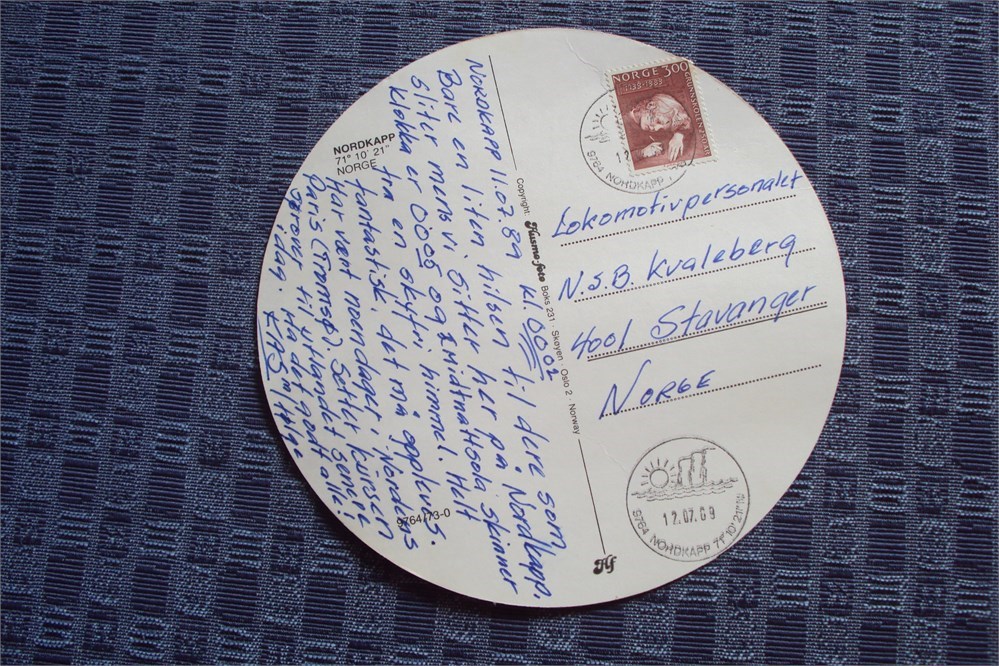 NORDKAPP
71° 10' 21"
NORGE
NORDKAPP 11.07.89 kl. 0002
Bare en liten hilsen til dere som
sliter mens vi sitter her på Nordkapp.
Klokka er 0005 og midtnattsola skinner
fra en skyfri himmel. Helt
fantastisk, det må oppleves.
Har vært noen dager i Nordens
Paris (Tromsø). Setter kursen
til utlandet senere
idag. Ha det godt alle!
9764/73-0
Copyright: Husmo-foto Boks 231 · Skøyen · Oslo 2 · Norway
Hf
NORGE 300
GRUNNSKOLEN
9764 NORDKAPP
12
Lokomotivpersonalet
N.S.B. Kvaleberg
4001 Stavanger
NORGE
12.07.89
9764 NORDKAPP 71°10'21"N